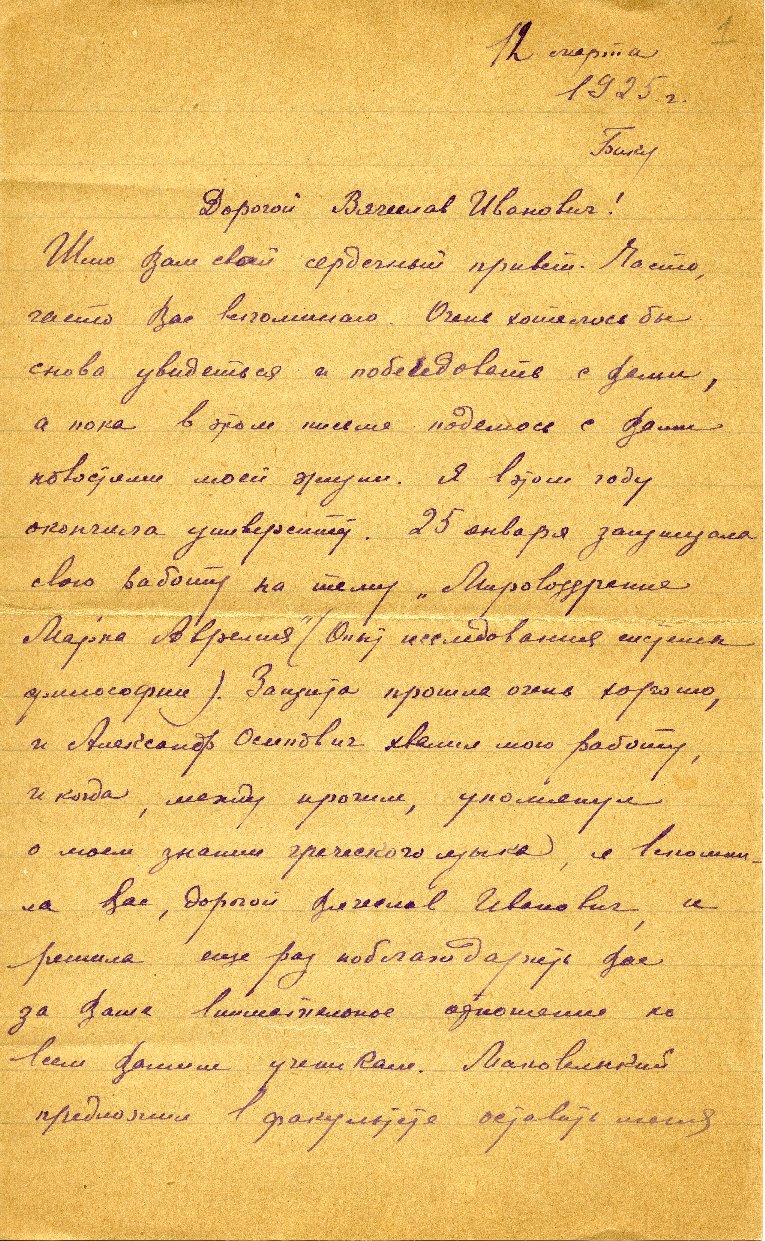 1
12 марта
1925 г.
Баку
Дорогой Вячеслав Иванович!
Шлю Вам свой сердечный привет. Часто,
часто Вас вспоминаю. Очень хотелось бы
снова увидеться и побеседовать с Вами,
а пока в этом письме поделюсь с Вами
новостями моей жизни. Я в этом году
окончила университет. 25 января защищала
свою работу на тему „Мировоззрение
Марка Аврелия" (Опыт исследования системы
философии). Защита прошла очень хорошо,
и Александр Осипович хвалил мою работу,
и когда, между прочим, упомянул
о моем знании греческого языка, я вспомни-
ла Вас, дорогой Вячеслав Иванович, и
решила еще раз поблагодарить Вас
за Ваше внимательное отношение ко
всем Вашим ученикам. Маковельский
предложил в факультете оставить меня